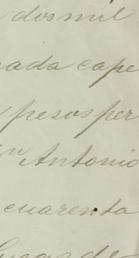 dos mil
ada cape
pesos per
n Antonio
cuarenta